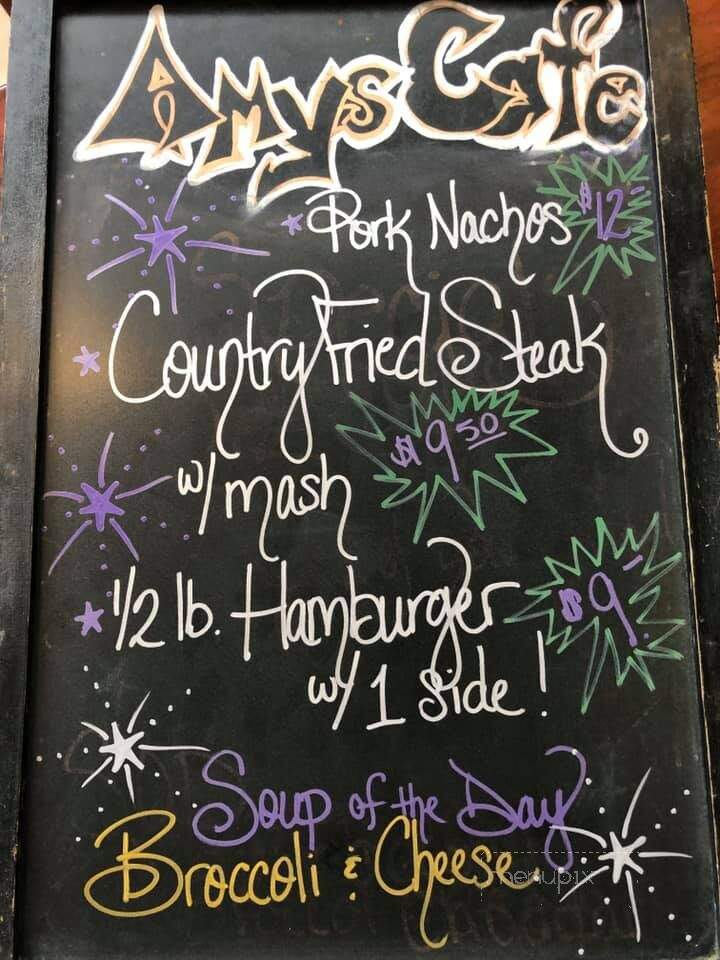 Amys Cafe
* Pork Nachos $12-
* Country Fried Steak
w/ mash $9 50
* 1/2 lb. Hamburger $9-
w/ 1 side!
Soup of the Day
Broccoli & Cheese
menupix